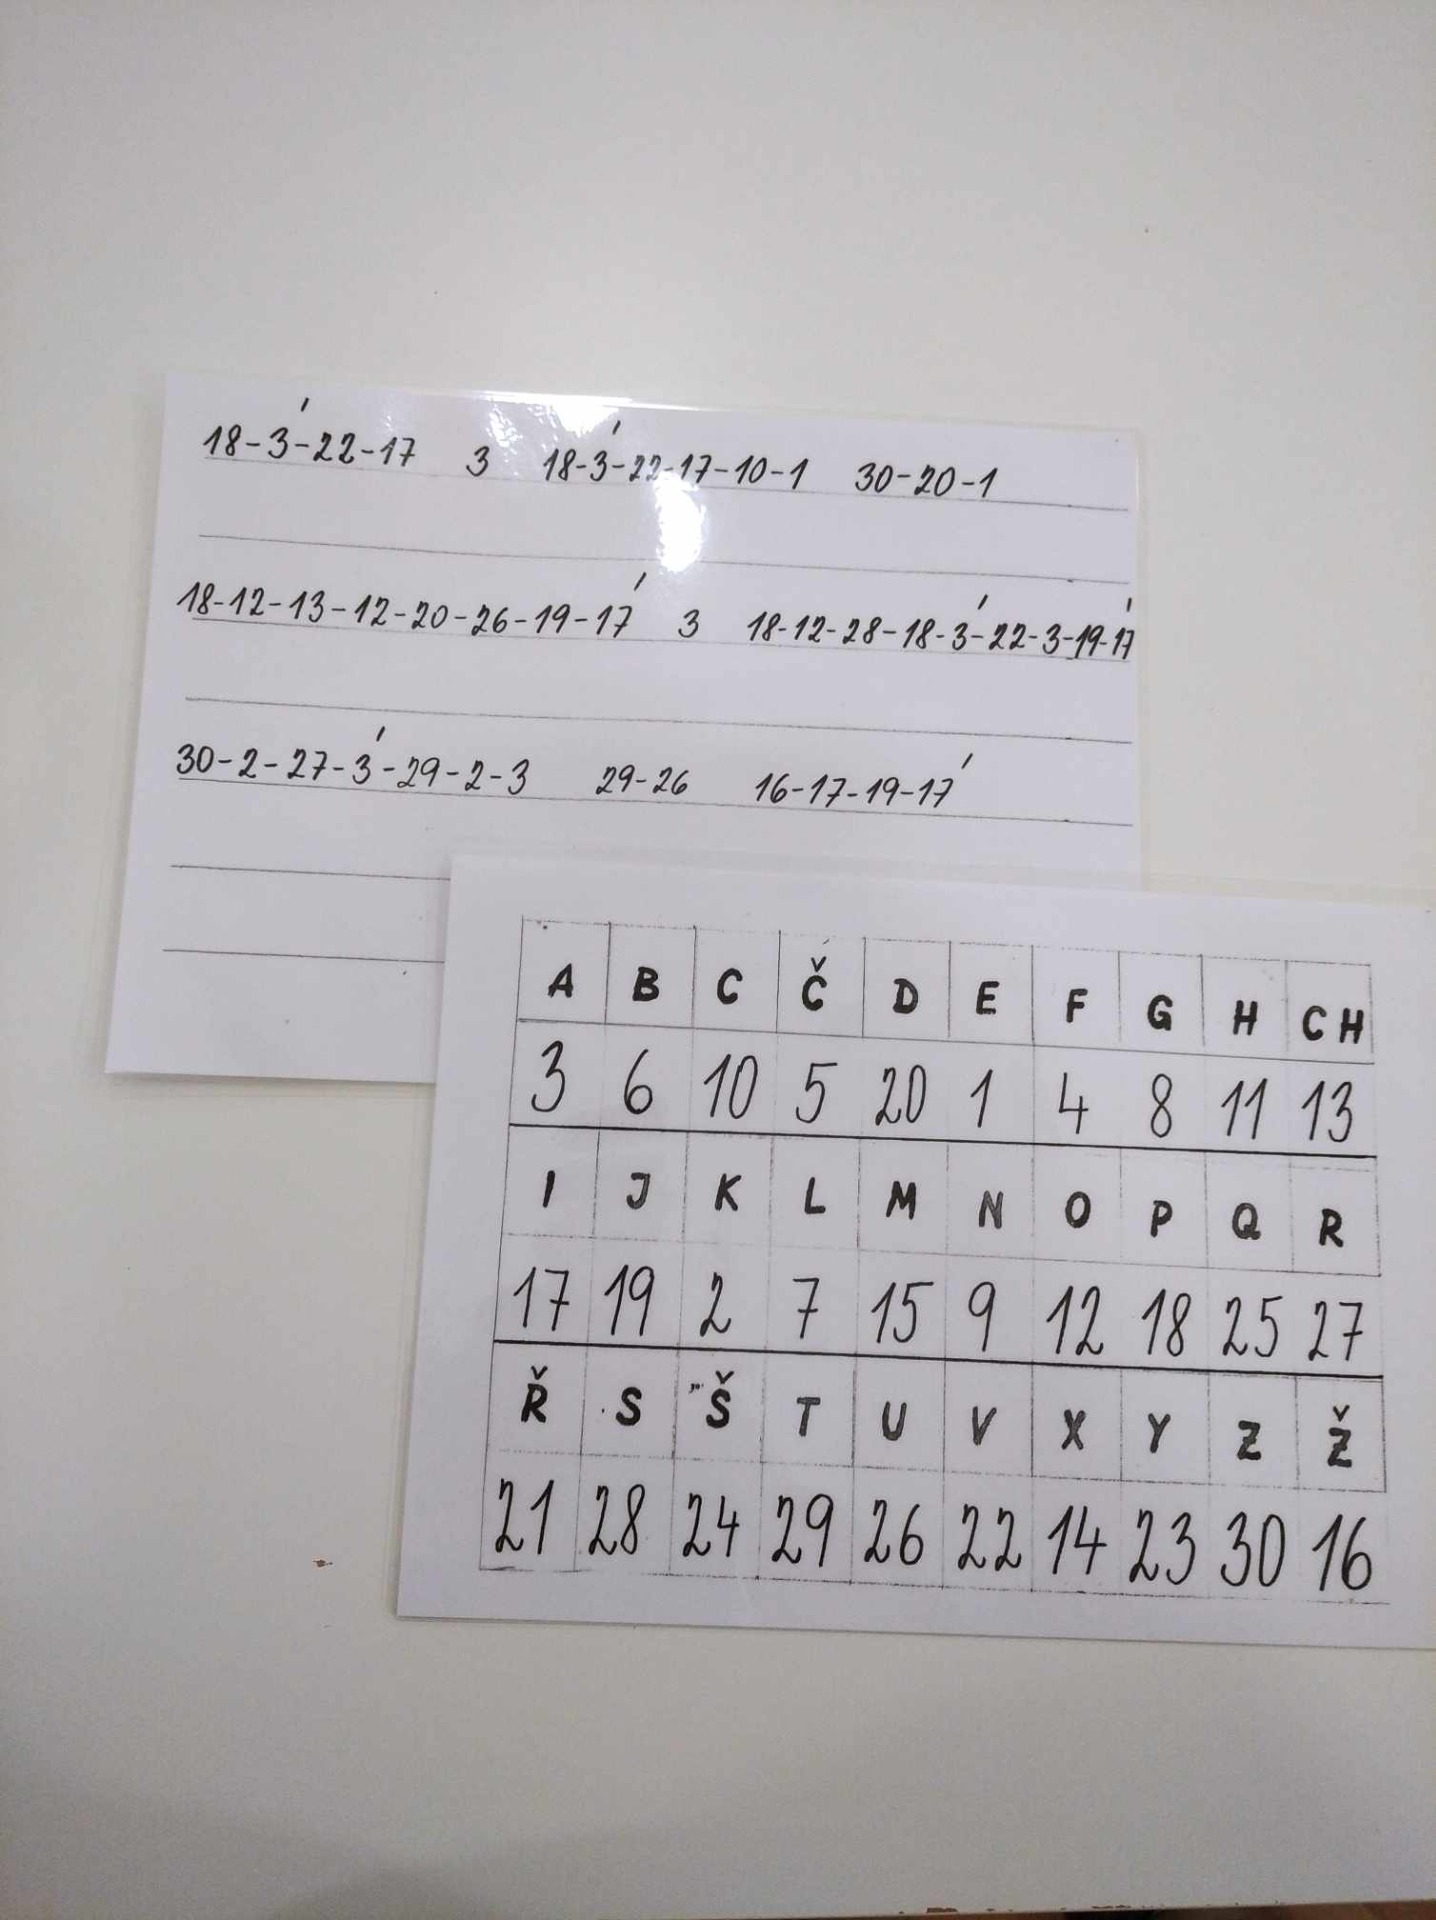 18-3́-22-17 3 18-3́-22-17-10-1 30-20-1
18-12-13-12-20-26-19-17́ 3 18-12-28-18-3́-22-3-19-17́
30-2-27-3́-29-2-3 29-26 16-17-19-17́
A B C Č D E F G H CH
3 6 10 5 20 1 4 8 11 13
I J K L M N O P Q R
17 19 2 7 15 9 12 18 25 27
Ř S Š T U V X Y Z Ž
21 28 24 29 26 22 14 23 30 16